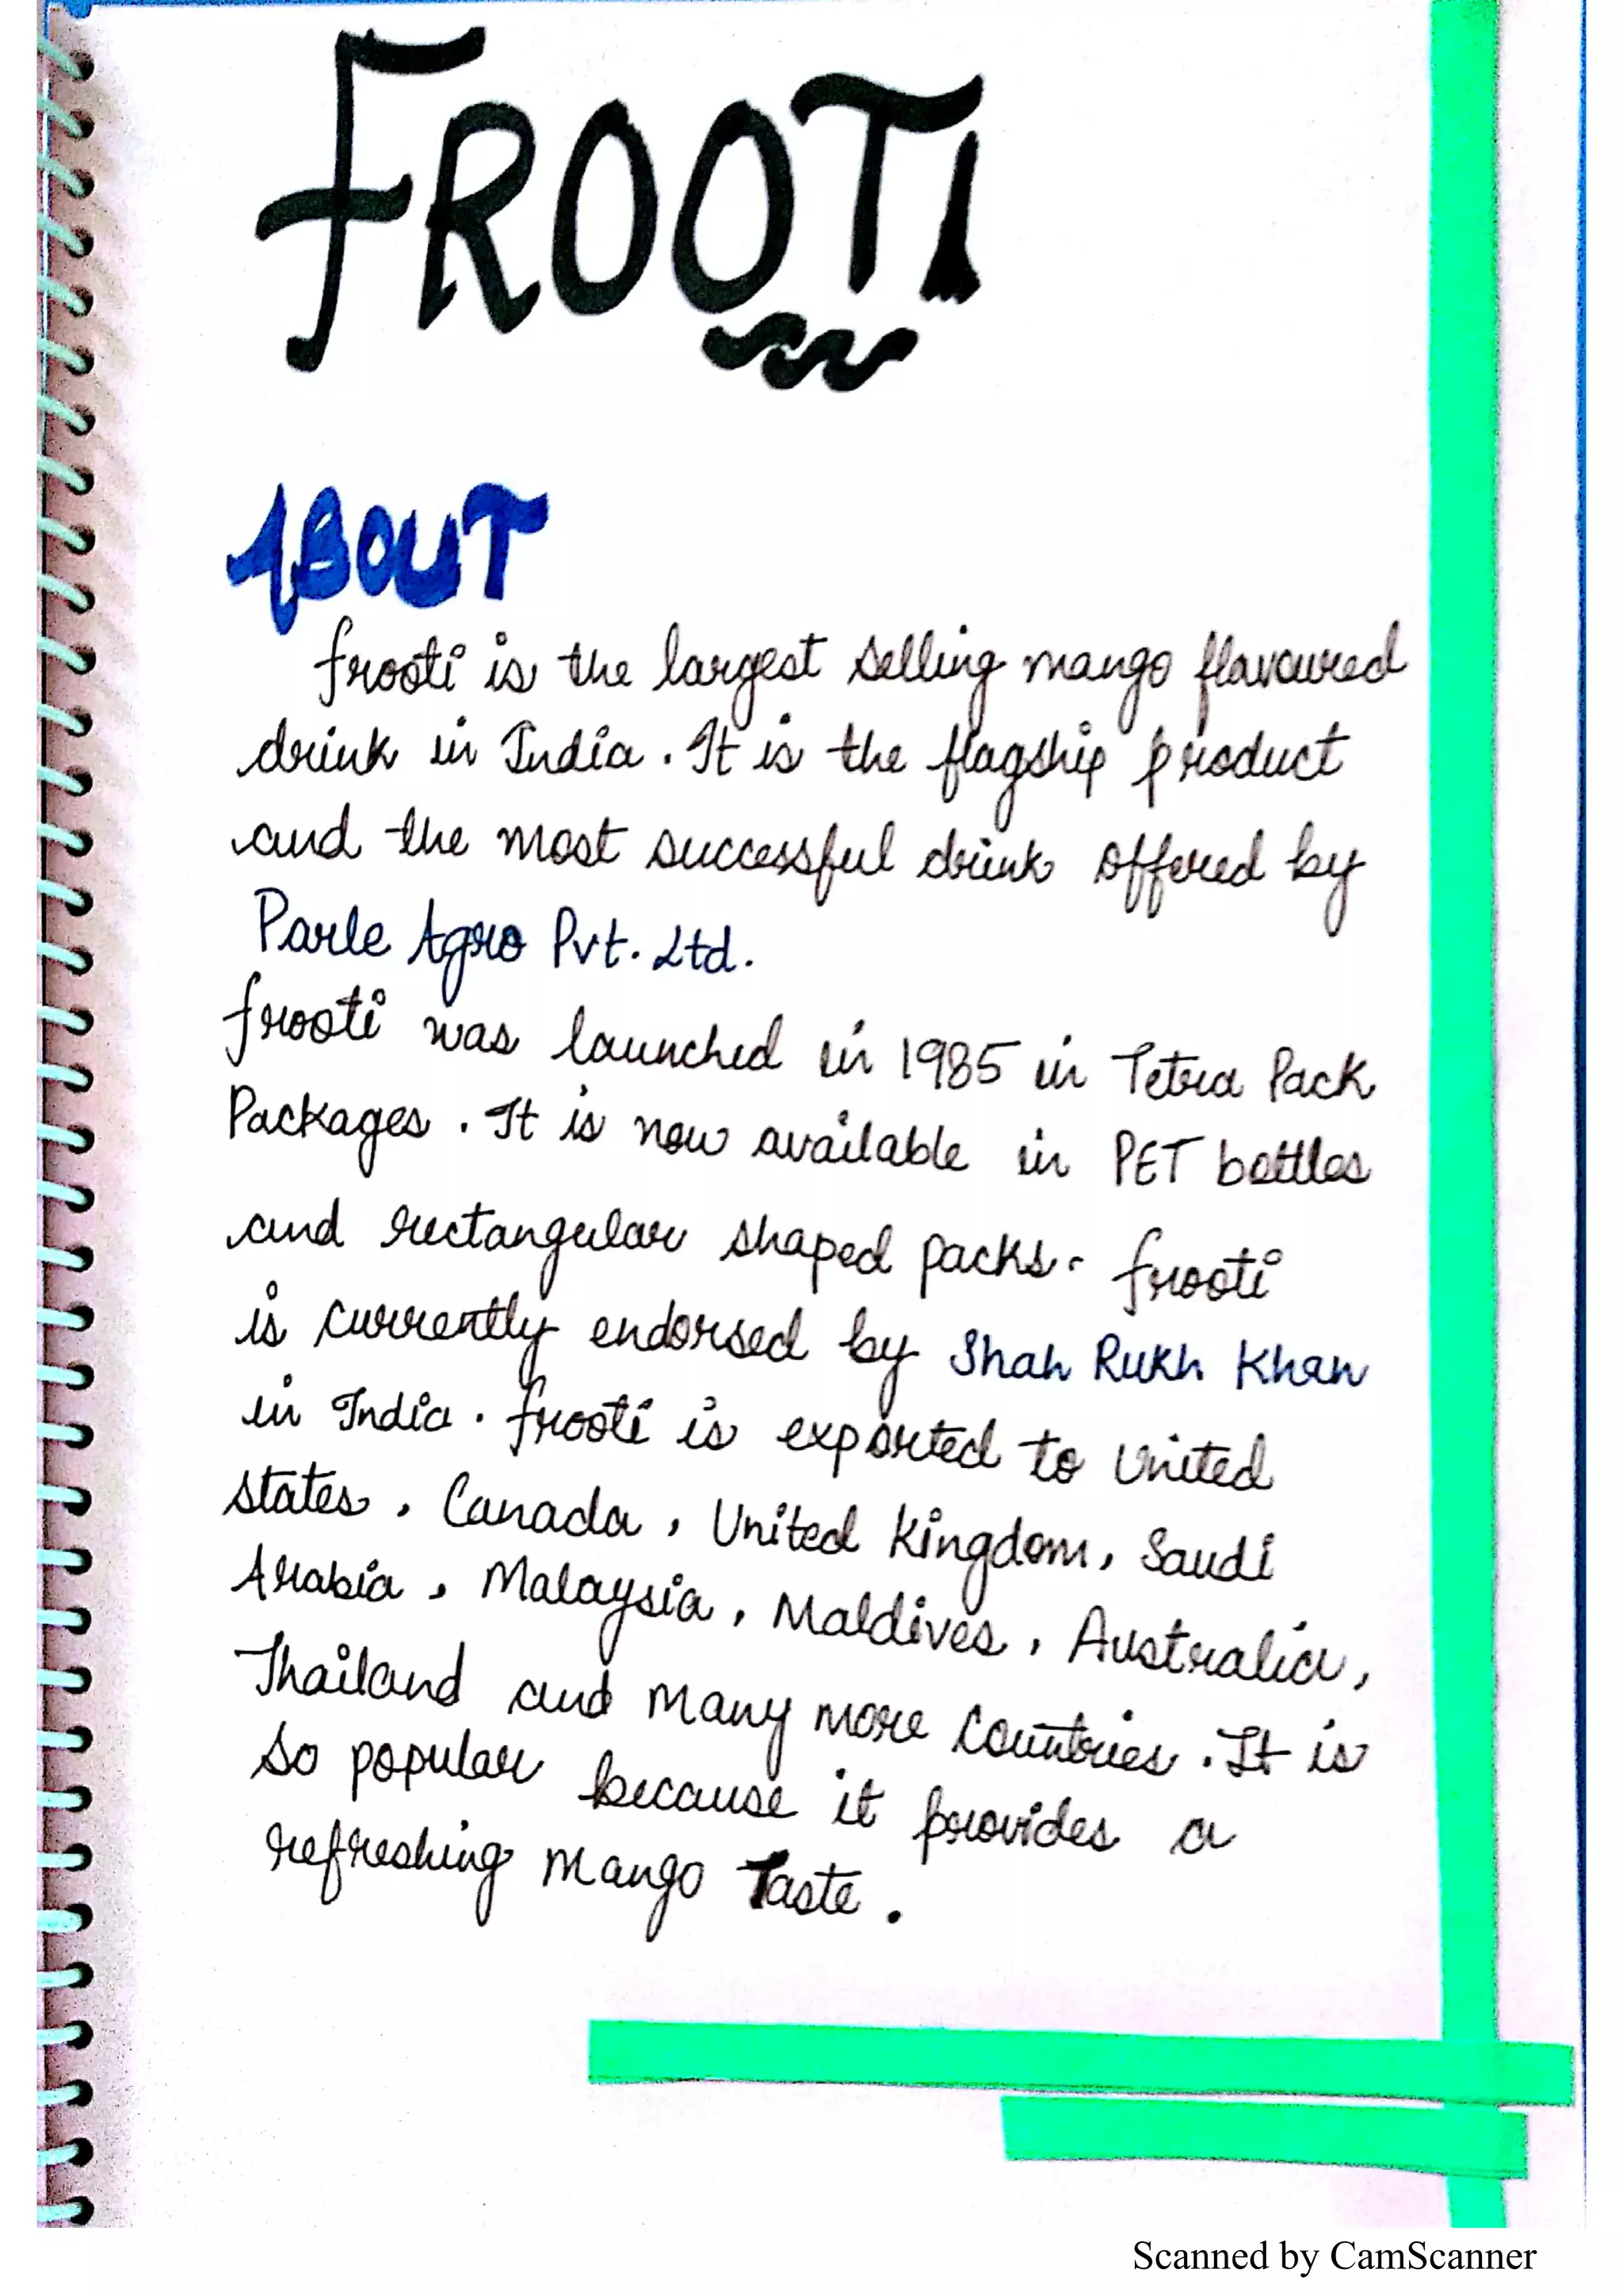 FROOTI
ABOUT
frooti is the largest selling mango flavoured
drink in India. It is the flagship product
and the most successful drink offered by
Parle Agro Pvt. Ltd.
frooti was launched in 1985 in Tetra Pack
Packages. It is now available in PET bottles
and rectangular shaped packs. frooti
is currently endorsed by Shah Rukh Khan
in India. frooti is exported to United
states, Canada, United Kingdom, Saudi
Arabia, Malaysia, Maldives, Australia,
Thailand and many more countries. It is
so popular because it provides a
refreshing mango Taste.
Scanned by CamScanner